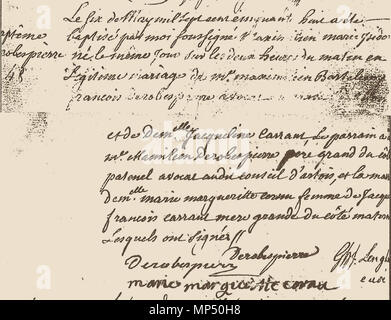 Le six de May mil sept cent cinquante huit a été
baptisé par moi soussigné Maximilien marie Isido
né le même jour sur les deux heures du matin en
Légitime mariage de mr. maximilien Barthelemy
françois Derobespierre avocat
et de Demelle Jacqueline Carraut, Le parrain
Mr. Maximilien Derobespierre pere grand du
paternel avocat audit conseil d'artois, et la mar
Demelle marie marguerite cornu femme de Jacq
françois carraut mere grande du côté matern
Lesquels ont signés //
Derobespierre Derobespierre
marie marguerite cornu
alamy
Image ID: MW50H8
www.alamy.com